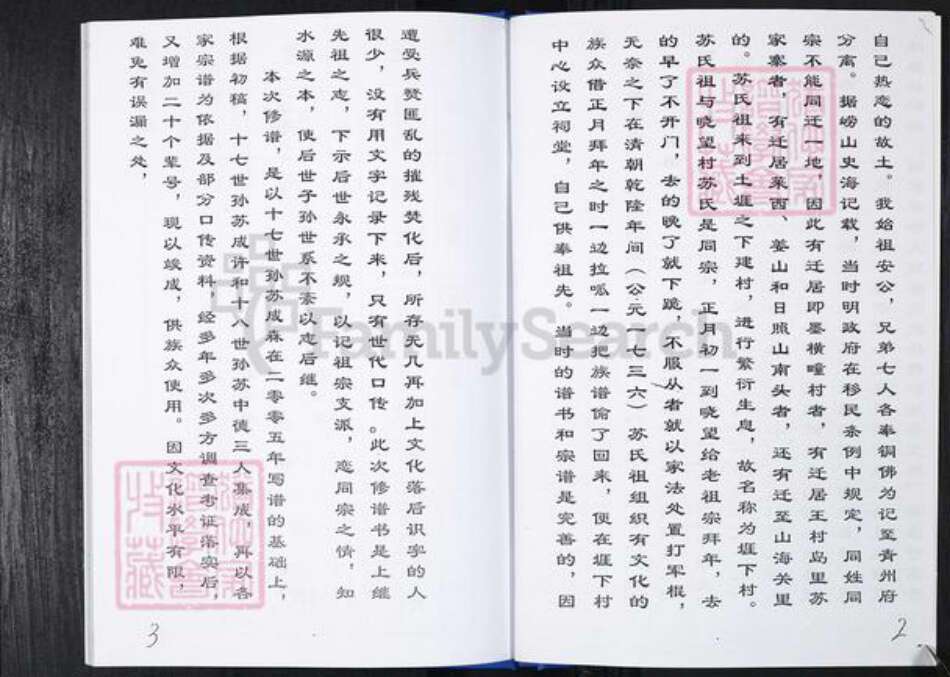 自己热恋的故土。我始祖安公，兄弟七人各奉铜佛为记至青州府
分离。据崂山史海记载，当时明政府在移民条例中规定，同姓同
宗不能同迁一地，因此有迁居即墨横疃村者，有迁居王村岛里苏
家寨者，有迁居莱西、莹山和日照山南头者，还有迁至山海关里
的。苏氏祖来到土堐之下建村，进行繁衍生息，故名称为堐下村。
苏氏祖与晓望村苏氏是同宗，正月初一到晓望给老祖宗拜年，去
的早了不开门，去的晚了就下跪，不服从者就以家法处置打军棍，
无奈之下在清朝乾隆年间（公元一七三六）苏氏祖组织有文化的
族众借正月拜年之时一边拉呱一边把族谱偷了回来，便在堐下村
中心设立祠堂，自己供奉祖先。当时的谱书和宗谱是完善的，因
2
遭受兵燹匪乱的摧残焚化后，所存无几再加上文化落后识字的人
很少，没有用文字记录下来，只有世代口传。此次修谱书是上继
先祖之志，下示后世永承之规，以记祖宗支派，恋同宗之情，知
水源之本，使后世子孙世系不紊以志后继。
本次修谱，是以十七世孙苏成森在二零零五年写谱的基础上，
根据初稿，十七世孙苏成许和十八世孙苏中德三人集成，再以各
家宗谱为依据及部分口传资料，经多年多次多方调查考证落实后，
又增加二十个辈号，现以竣成，供族众使用。因文化水平有限，
难免有误漏之处，
3
FamilySearch